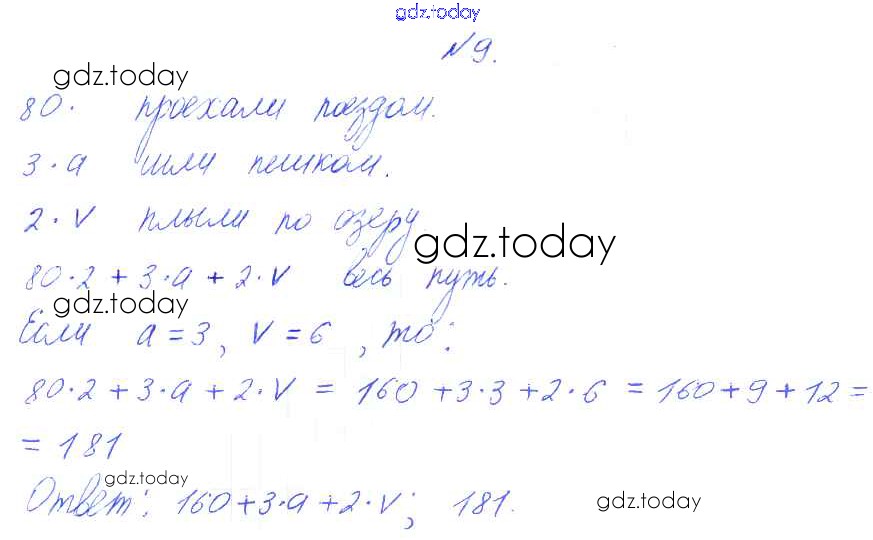 gdz.today
N9.
gdz.today
80· проехали поездом.
3·a шли пешком.
2·v плыли по озеру
gdz.today
80·2 + 3·a + 2·v весь путь.
gdz.today
Если a = 3, v = 6, то:
80·2 + 3·a + 2·v = 160 + 3·3 + 2·6 = 160 + 9 + 12 =
= 181
gdz.today
Ответ: 160 + 3·a + 2·v; 181.
gdz.today